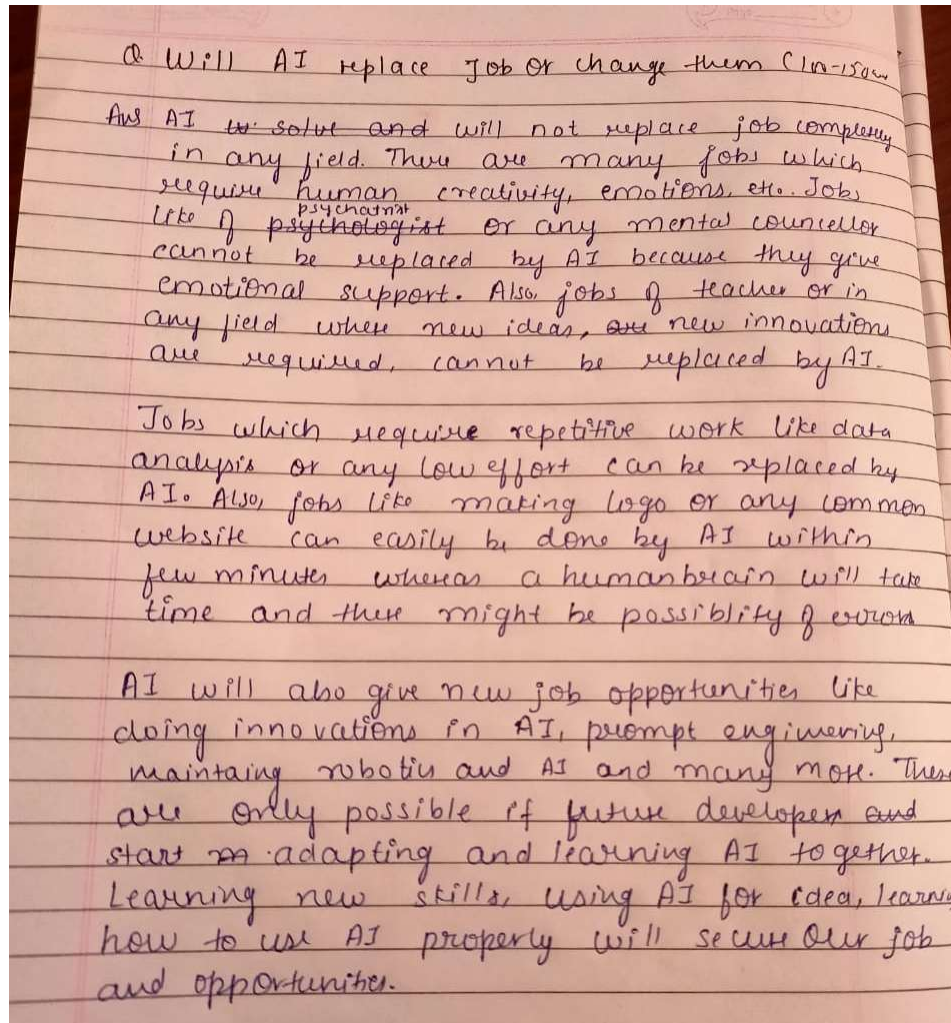 Q Will AI replace Job or change them (100-150w
Ans AI to solve and will not replace job completely
in any field. There are many jobs which
require human creativity, emotions, etc. Jobs
psychatrist
like of psychologist or any mental councellor
cannot be replaced by AI because they give
emotional support. Also, jobs of teacher or in
any field where new ideas, are new innovations
are required, cannot be replaced by AI.
Jobs which require repetitive work like data
analysis or any low effort can be replaced by
AI. Also, jobs like making logo or any common
website can easily be done by AI within
few minutes whereas a human brain will take
time and there might be possiblity of errors
AI will also give new job opportunities like
doing innovations in AI, prompt enginering,
maintaing robotics and AI and many more. These
are only possible if future developers and
start adapting and learning AI together.
Learning new skills, using AI for idea, learni
how to use AI properly will secure our job
and opportunities.